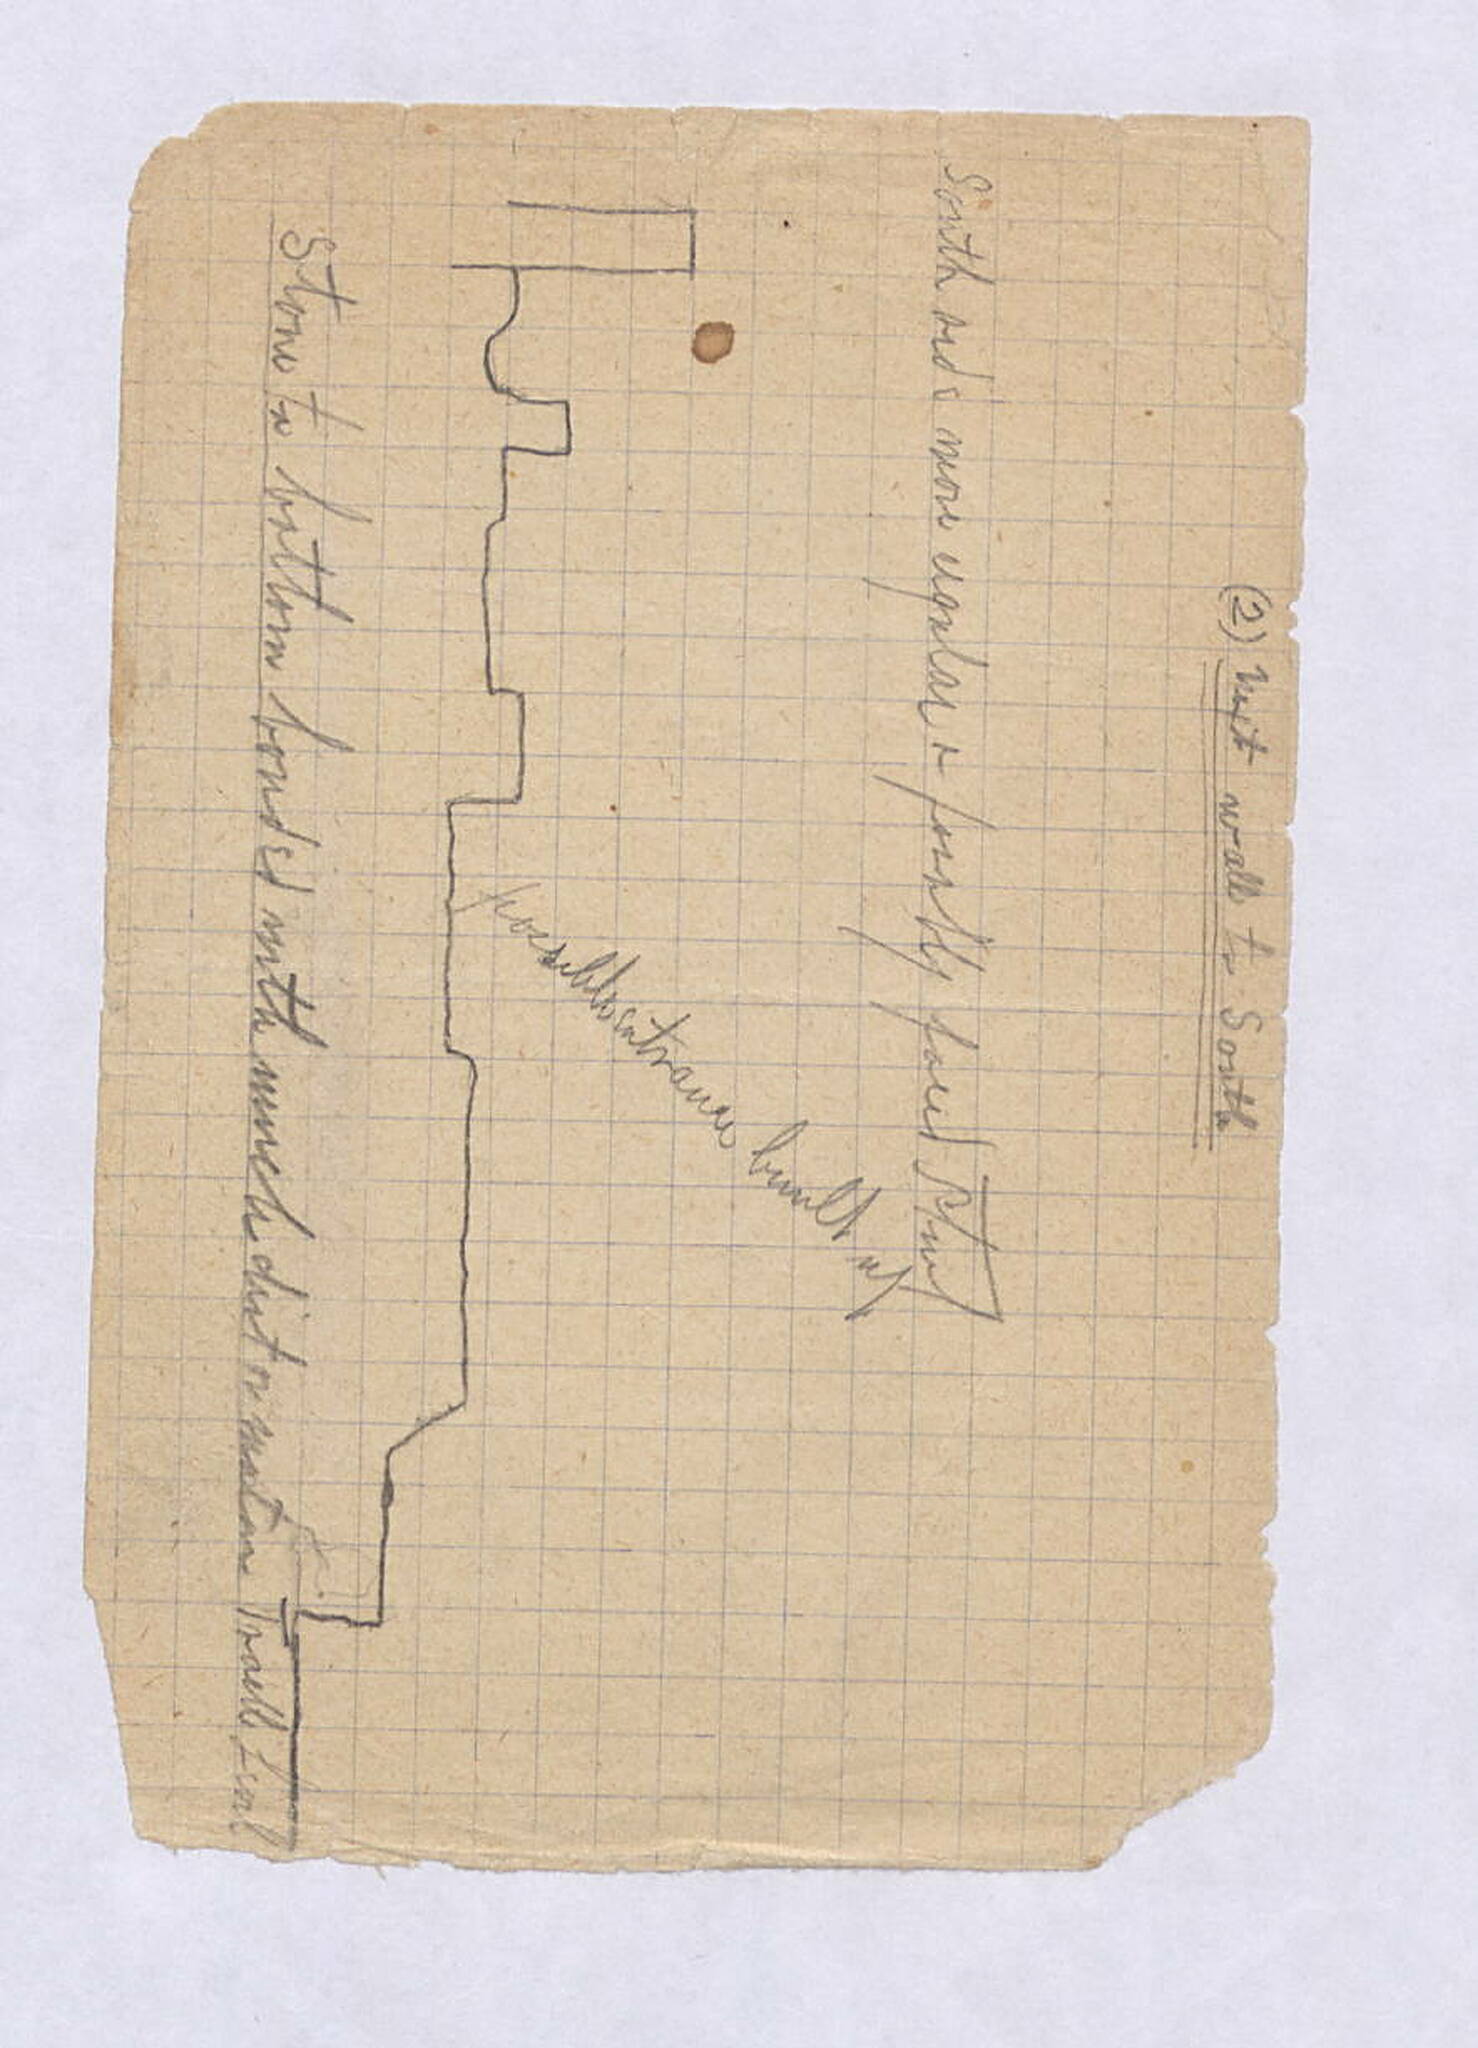 (2) Next wall to South
South side more regular & possibly faced
possible entrance built up
Stone to bottom bonded with much dirt or mortar